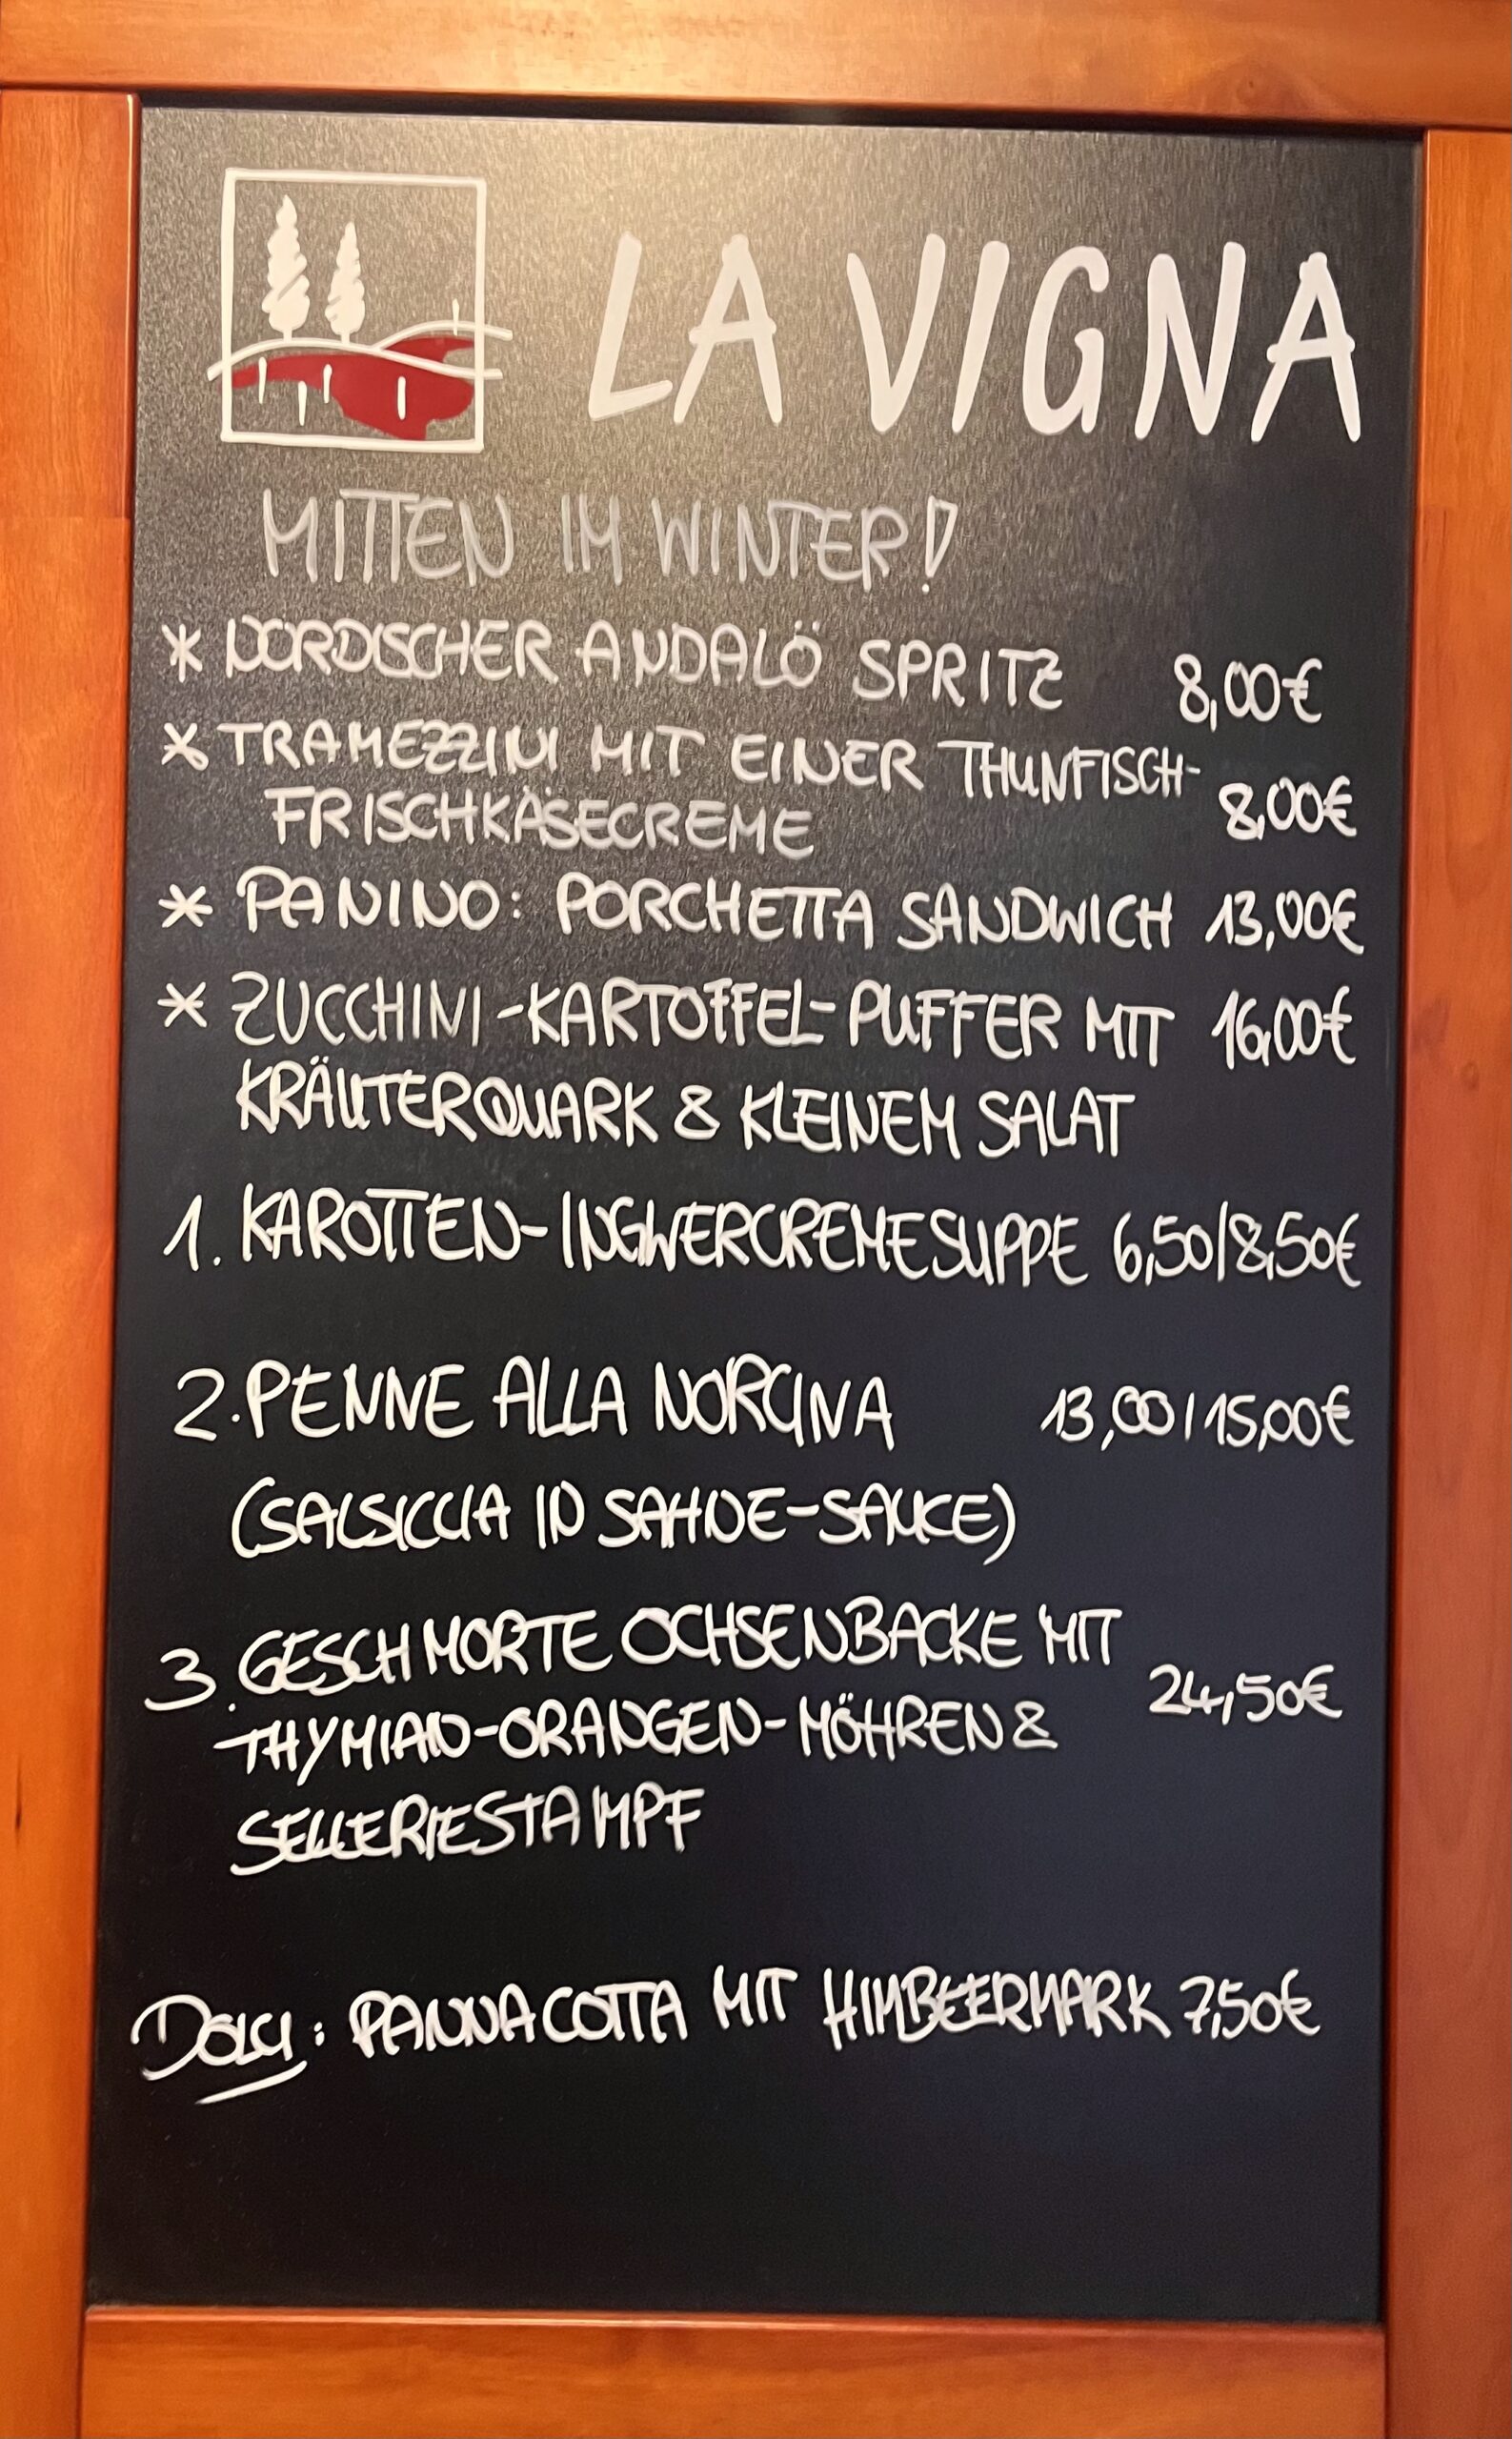 LA VIGNA
MITTEN IM WINTER!
* NORDISCHER ANDALÖ SPRITZ 8,00€
* TRAMEZZINI MIT EINER THUNFISCH-
FRISCHKÄSECREME 8,00€
* PANINO: PORCHETTA SANDWICH 13,00€
* ZUCCHINI-KARTOFFEL-PUFFER MIT 16,00€
KRÄUTERQUARK & KLEINEM SALAT
1. KAROTTEN-INGWERCREMESUPPE 6,50/8,50€
2. PENNE ALLA NORCINA 13,00/15,00€
(SALSICCIA IN SAHNE-SAUCE)
3. GESCHMORTE OCHSENBACKE MIT
THYMIAN-ORANGEN-MÖHREN & 24,50€
SELLERIESTAMPF
DOLCI: PANNACOTTA MIT HIMBEERMARK 7,50€